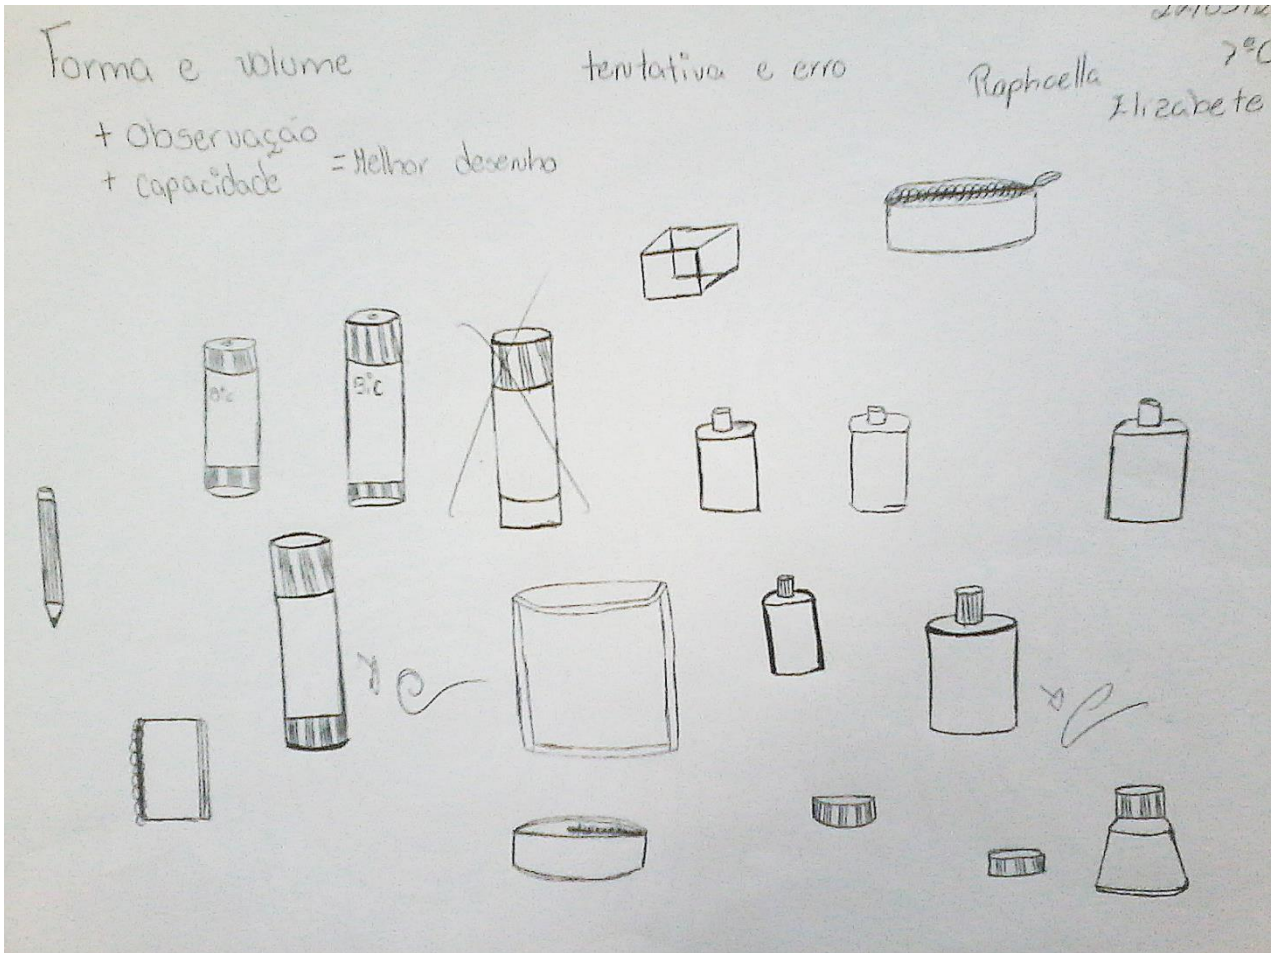 Forma e volume
tentativa e erro
Raphaella
Elizabete
7ºC
+ Observação
+ capacidade
= Melhor desenho
Bic
Bic